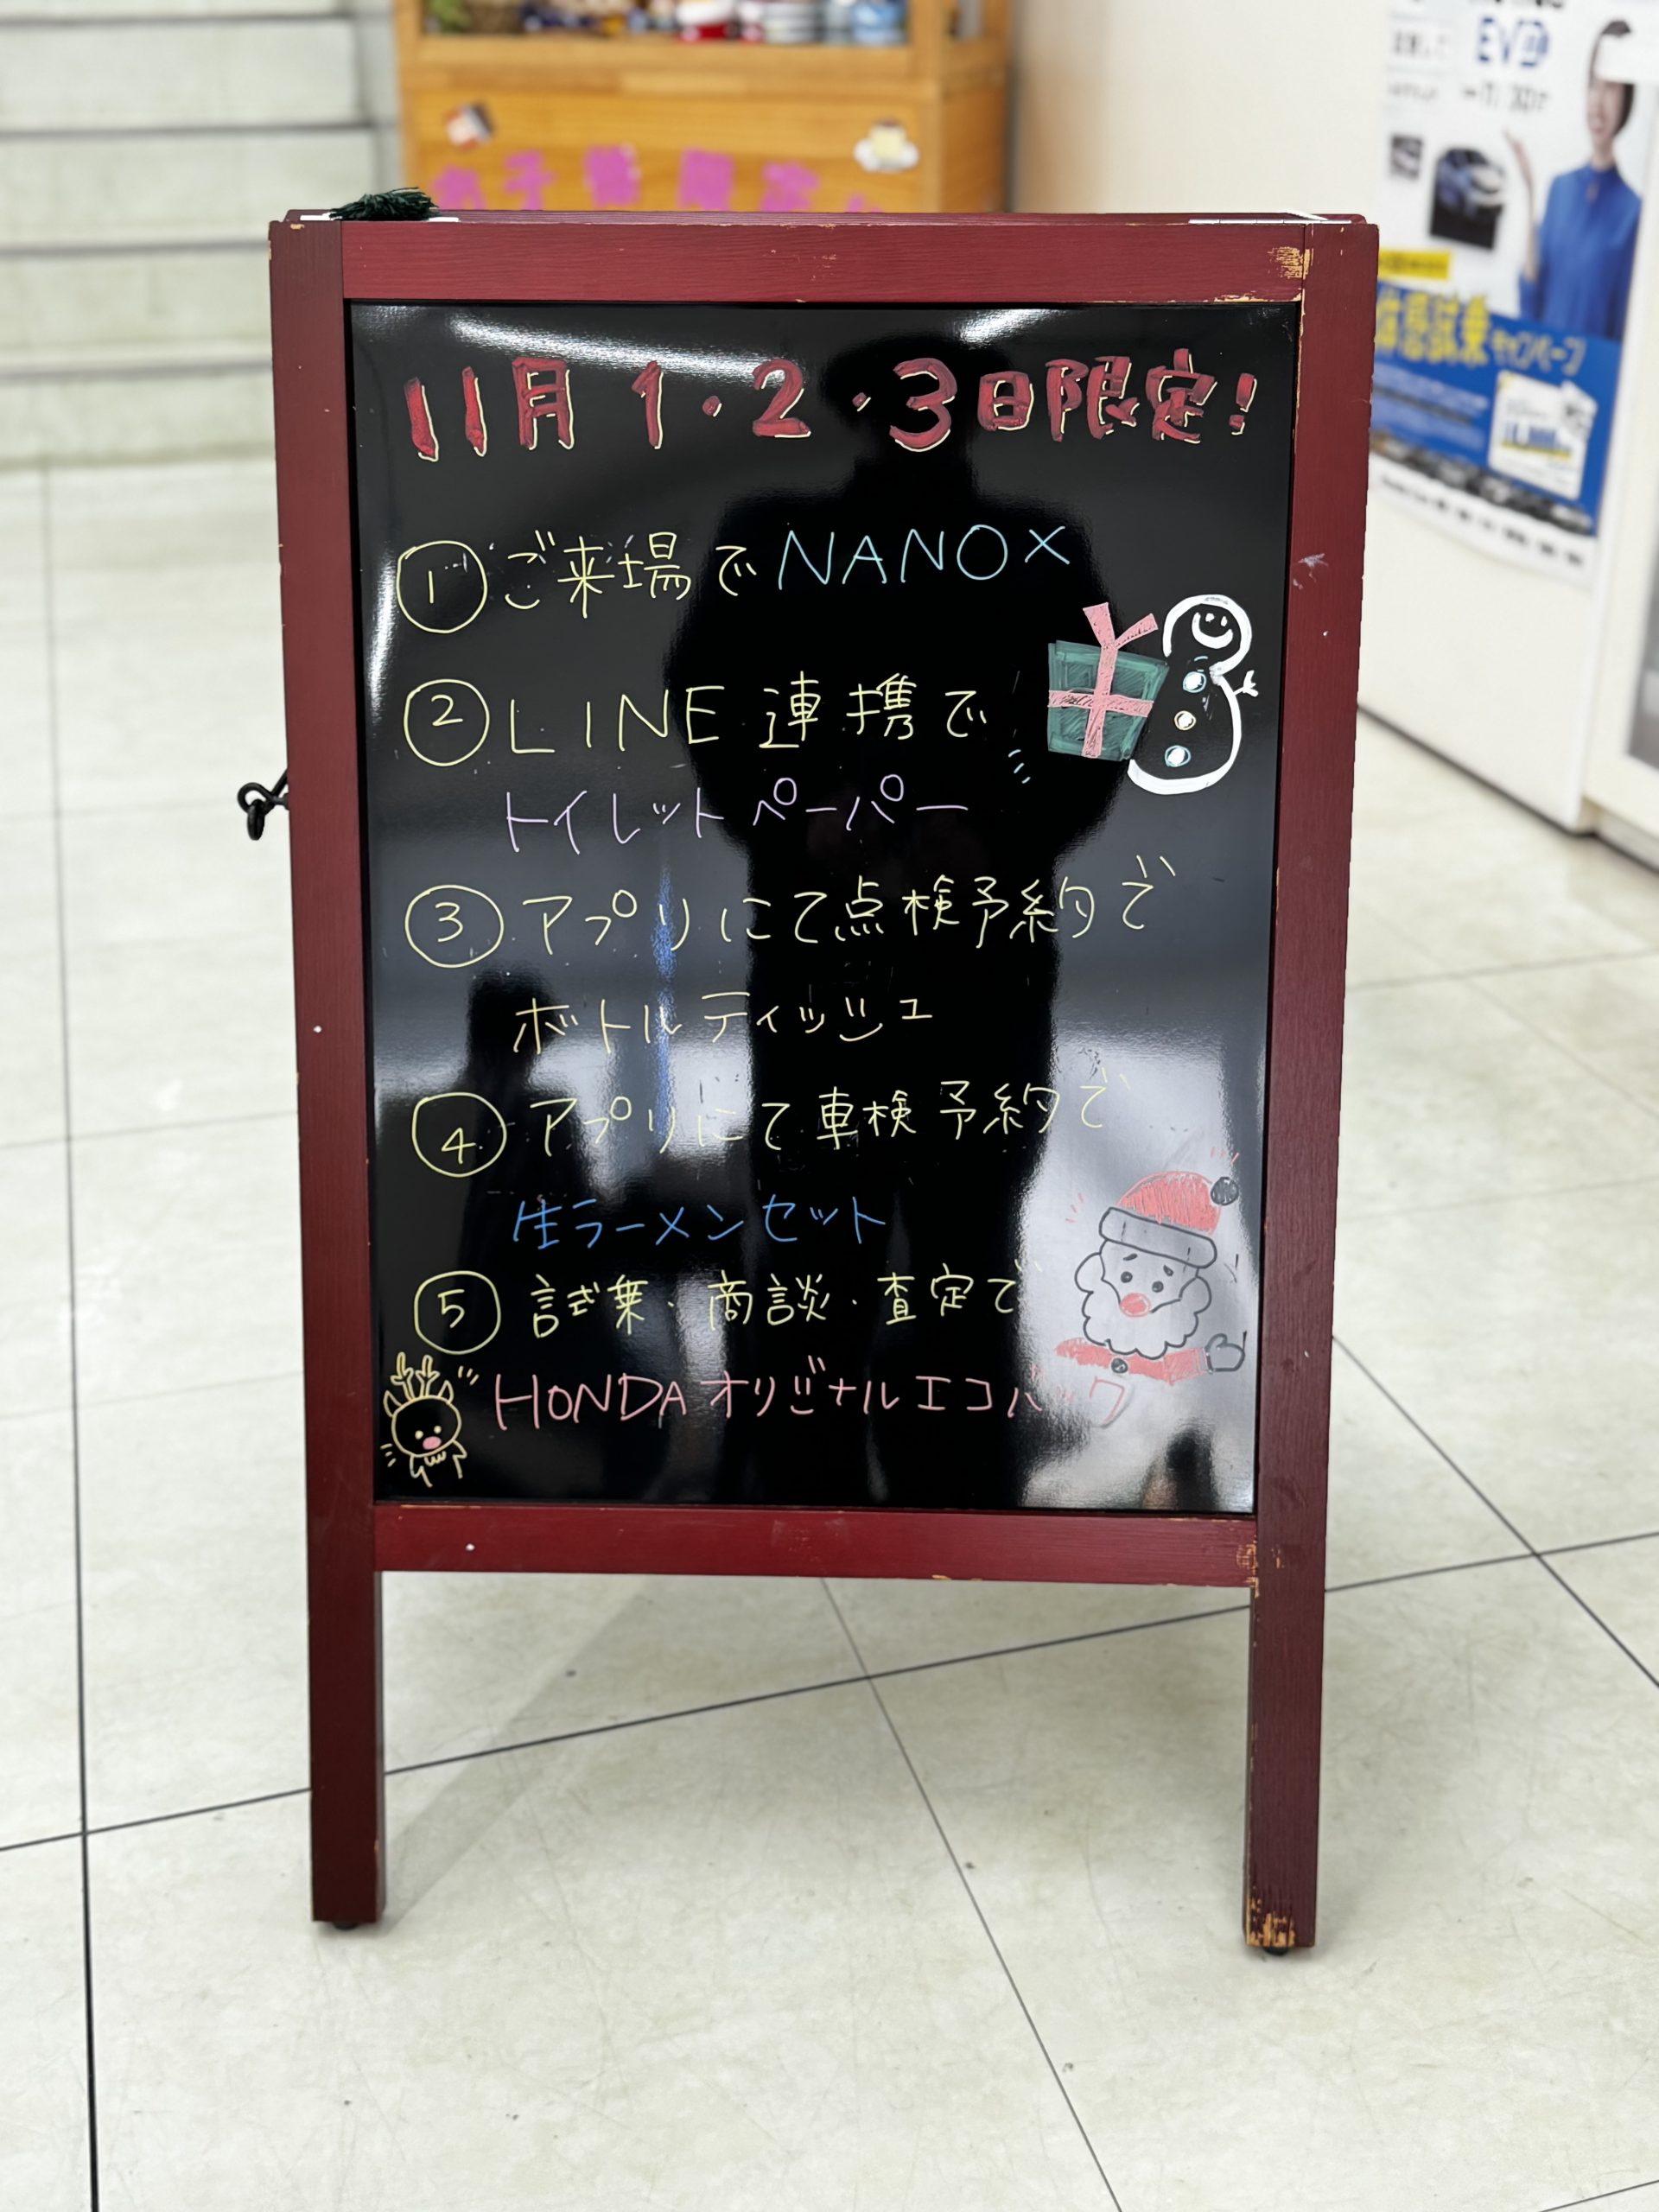 11月 1・2・3日限定!
① ご来場で NANOX
② LINE 連携で
トイレットペーパー
③ アプリにて点検予約で
ボトルティッシュ
④ アプリにて車検予約で
生ラーメンセット
⑤ 試乗・商談・査定で
HONDAオリジナルエコバック
EV
試乗キャンペーン